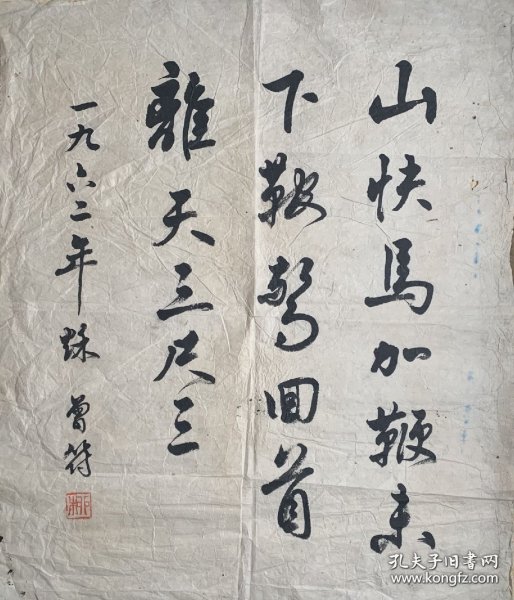 山快馬加鞭未
下鞍驚回首
離天三尺三
一九六二年秌 曾符
孔夫子旧书网
www.kongfz.com